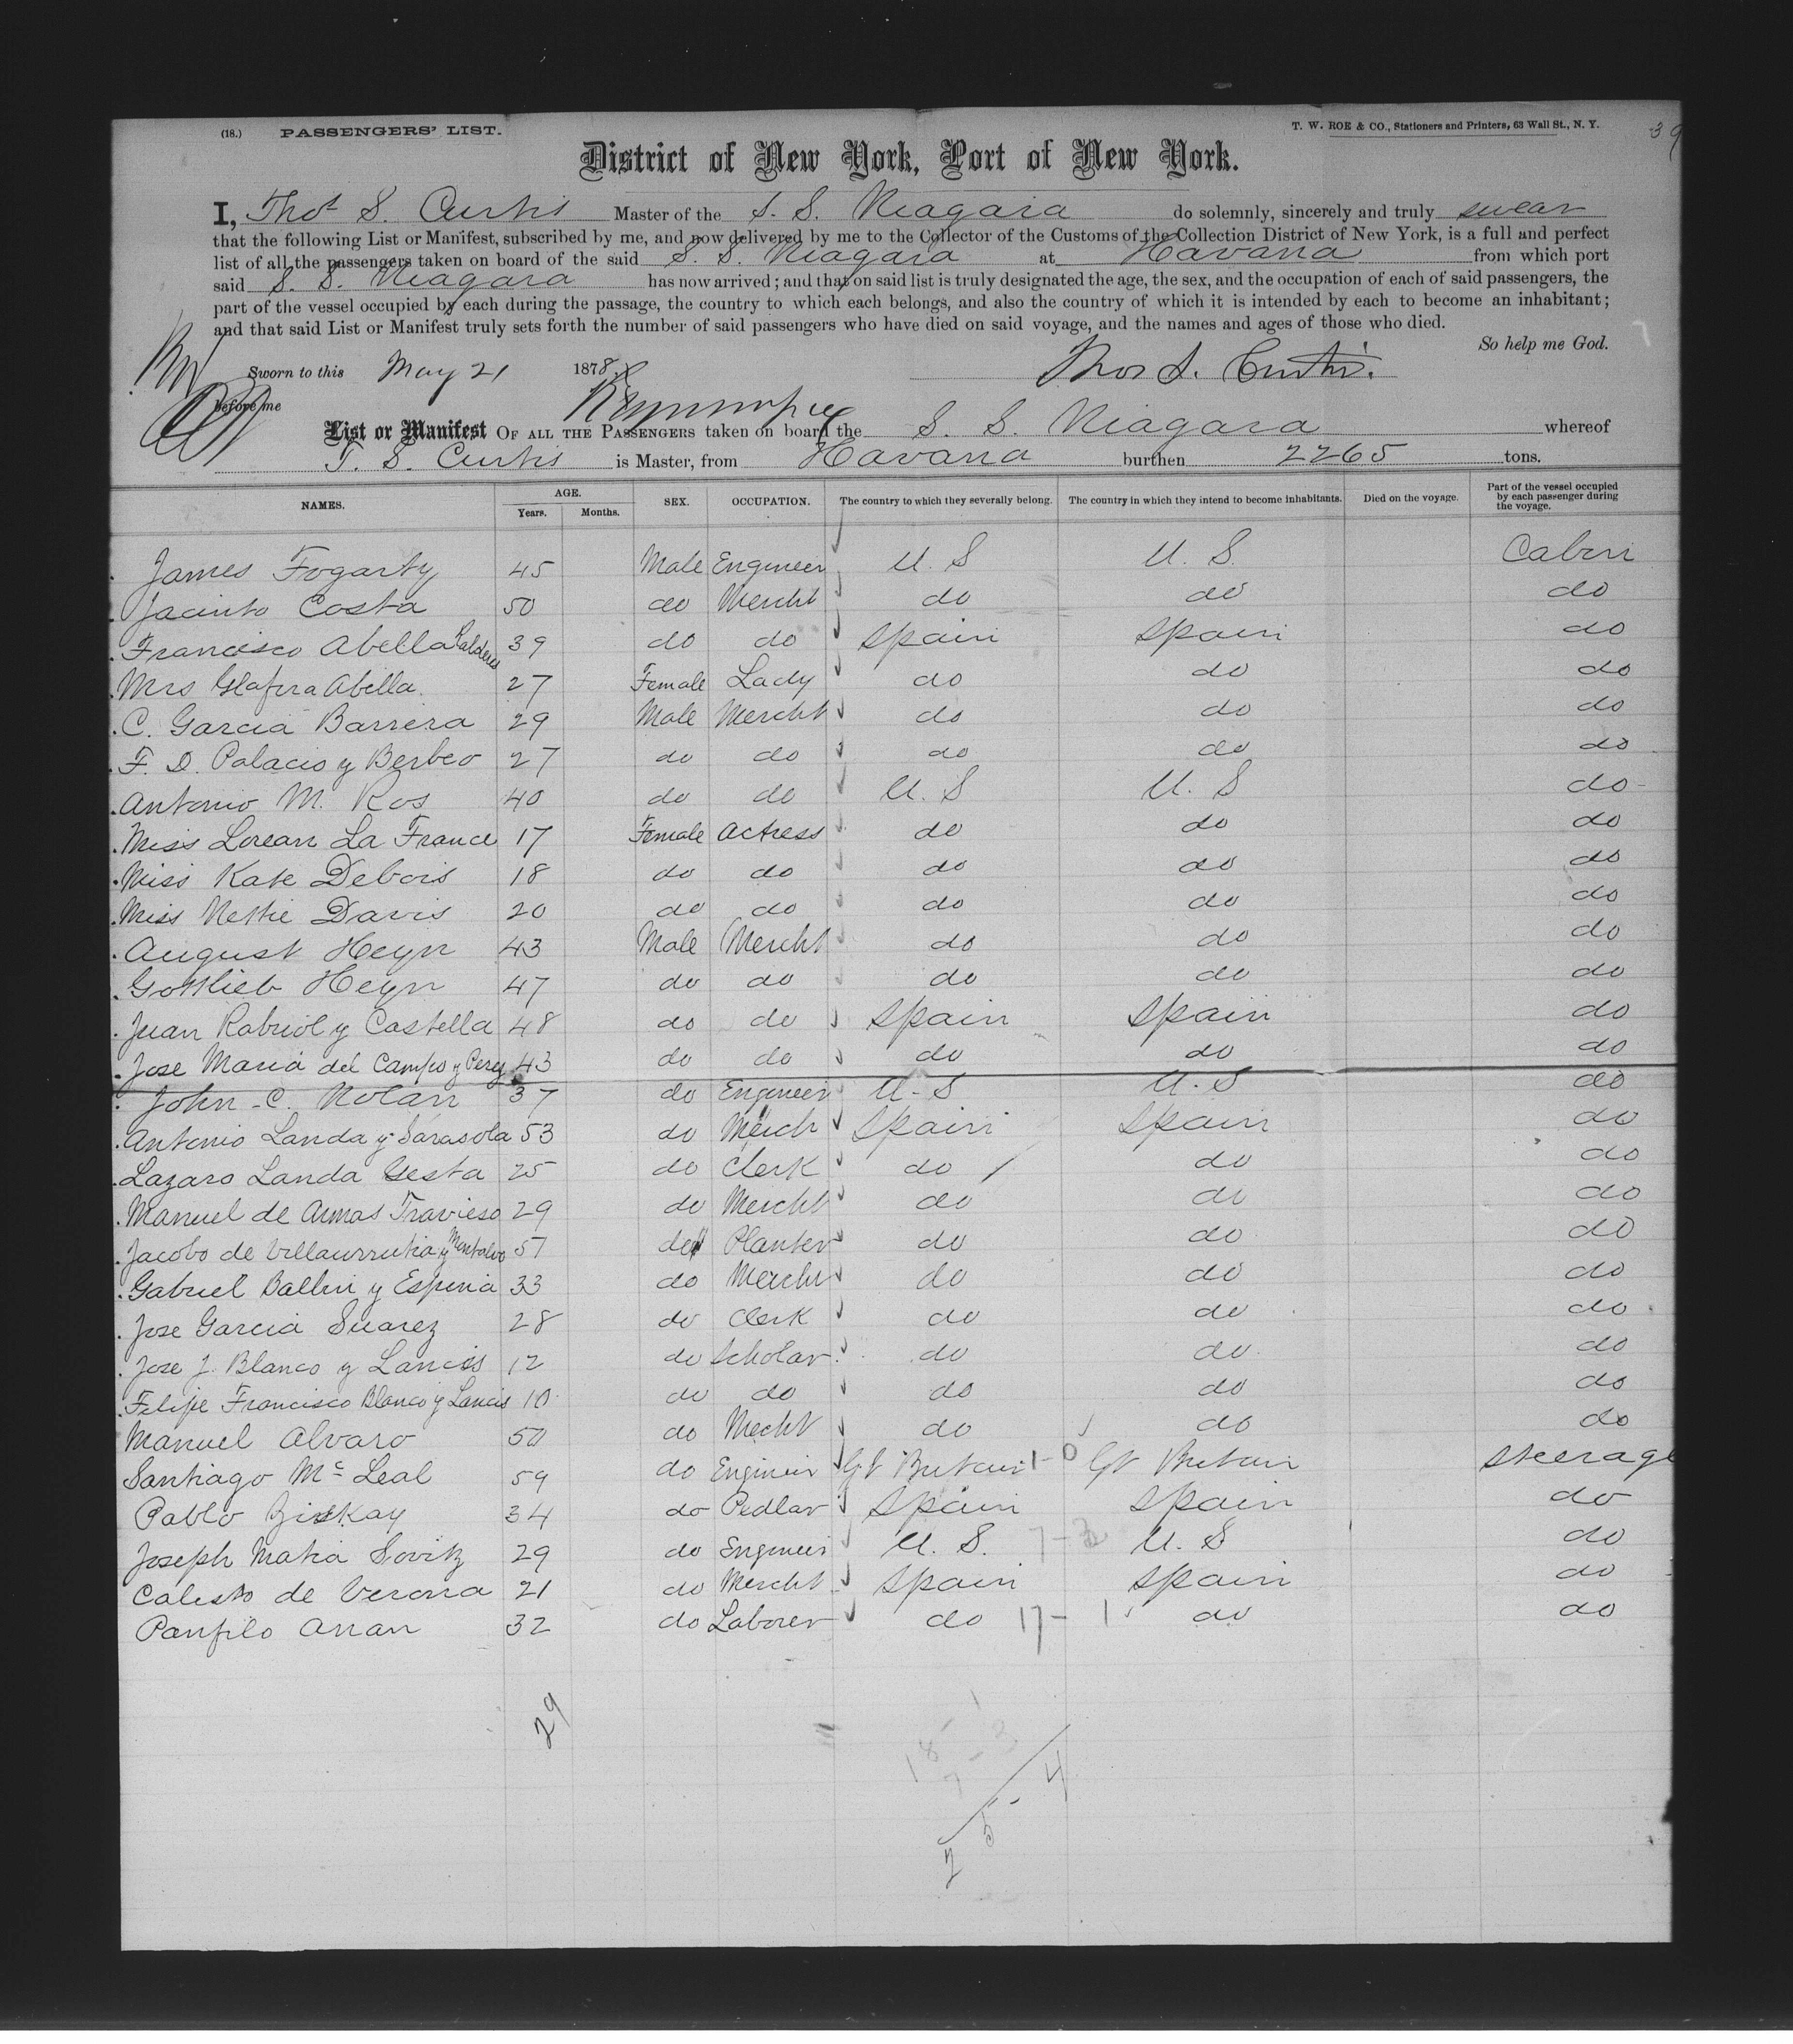 (18.) PASSENGERS' LIST. T. W. ROE & CO., Stationers and Printers, 63 Wall St., N. Y. 39
District of New York, Port of New York.
I, Thos S. Curtis Master of the S. S. Niagara do solemnly, sincerely and truly swear
that the following List or Manifest, subscribed by me, and now delivered by me to the Collector of the Customs of the Collection District of New York, is a full and perfect
list of all the passengers taken on board of the said S. S. Niagara at Havana from which port
said S. S. Niagara has now arrived; and that on said list is truly designated the age, the sex, and the occupation of each of said passengers, the
part of the vessel occupied by each during the passage, the country to which each belongs, and also the country of which it is intended by each to become an inhabitant;
and that said List or Manifest truly sets forth the number of said passengers who have died on said voyage, and the names and ages of those who died.
So help me God.
Sworn to this May 21 1878. Thos S. Curtis.
before me
List or Manifest OF ALL THE PASSENGERS taken on board the S. S. Niagara whereof
T. S. Curtis is Master, from Havana burthen 2265 tons.
NAMES. AGE. Years. Months. SEX. OCCUPATION. The country to which they severally belong. The country in which they intend to become inhabitants. Died on the voyage. Part of the vessel occupied by each passenger during the voyage.
James Fogarty 45 Male Engineer U. S U. S. Cabin
Jacinto Costa 50 do Mercht do do do
Francisco Abella 39 do do Spain Spain do
Mrs Glafira Abella. 27 Female Lady do do do
C. Garcia Barrera 29 Male Mercht do do do
F. D. Palacio y Berbeo 27 do do do do do
Antonio M. Ros 40 do do U. S U. S do
Miss Lorean La France 17 Female Actress do do do
Miss Kate Debois 18 do do do do do
Miss Nettie Davis 20 do do do do do
August Heyn 43 Male Mercht do do do
Gottlieb Heyn 47 do do do do do
Juan Rabriol y Castella 48 do do Spain Spain do
Jose Maria del Campo y Perez 43 do do do do do
John C. Nolan 37 do Engineer U. S U. S do
Antonio Landa y Sarasola 53 do Merch Spain Spain do
Lazaro Landa Gesta 25 do Clerk do do do
Manuel de Armas Travieso 29 do Mercht do do do
Jacobo de Villaurrutia y Montalvo 51 do Planter do do do
Gabriel Ballin y Espina 33 do Mercht do do do
Jose Garcia Suarez 28 do Clerk do do do
Jose J. Blanco y Lancis 12 do Scholar do do do
Felipe Francisco Blanco y Lancis 10 do do do do do
Manuel Alvaro 50 do Mecht do do do
Santiago Mc Leal 59 do Engineer Gt Britain 1-0 Gt Britain Steerage
Pablo Ziskay 34 do Pedlar Spain Spain do
Joseph Matia Sovitz 29 do Engineer U. S. U. S do
Calisto de Verona 21 do Mercht Spain Spain do
Panfilo Anan 32 do Laborer do 17-1 do do
29
18 - 3
7
25 - 4